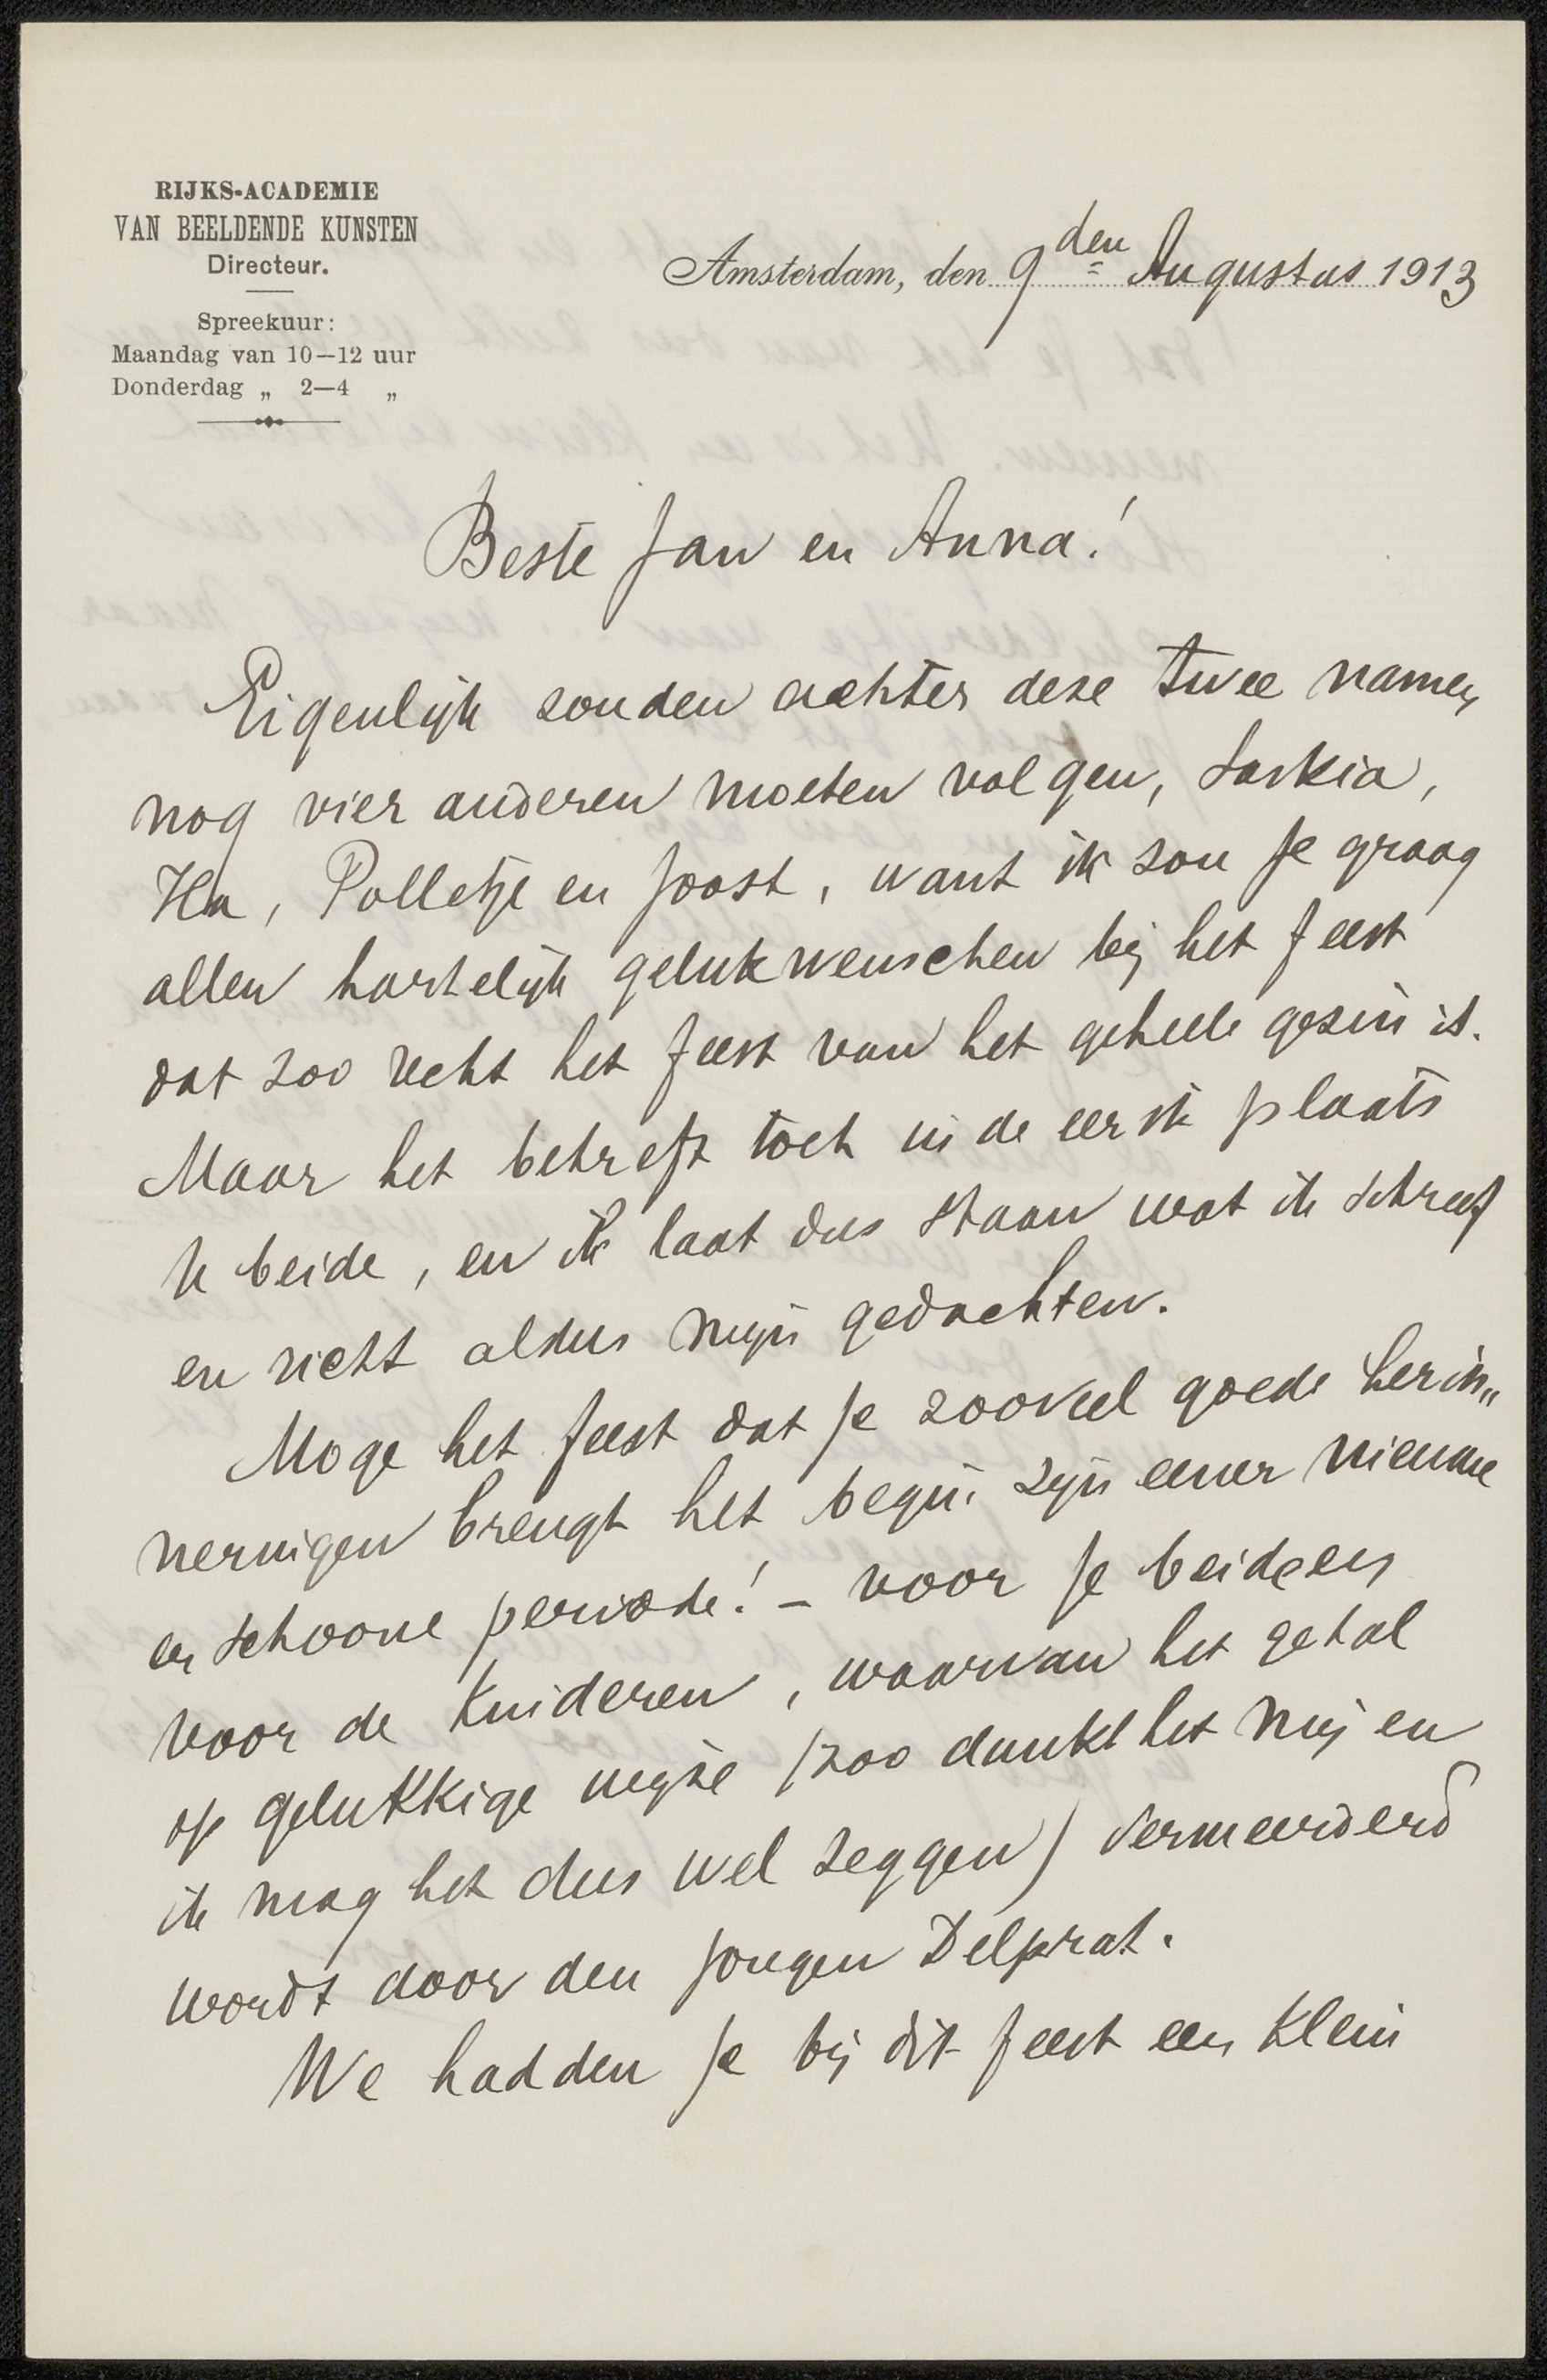 RIJKS-ACADEMIE
VAN BEELDENDE KUNSTEN
Directeur.
Spreekuur:
Maandag van 10—12 uur
Donderdag „ 2—4 „
Amsterdam, den 9den Augustus 1913
Beste Jan en Anna!
Eigenlijk zouden achter deze twee namen
nog vier anderen moeten volgen, Saskia,
Polletje en Joost, want ik zou je graag
allen hartelijk gelukwenschen bij het feest
dat zoo recht het feest van het geheele gezin is.
Maar het betreft toch in de eerste plaats
U beide, en ik laat dus staan wat ik schreef
en richt aldus mijn gedachten.
Moge het feest dat je zooveel goede herin„
neringen brengt het begin zijn eener nieuwe
en schoone periode! – voor je beide en
voor de kinderen, waarvan het getal
op gelukkige wijze (zoo dunkt het mij en
ik mag het dus wel zeggen) vermeerderd
wordt door den jongen Delprat.
We hadden je bij dit feest een klein